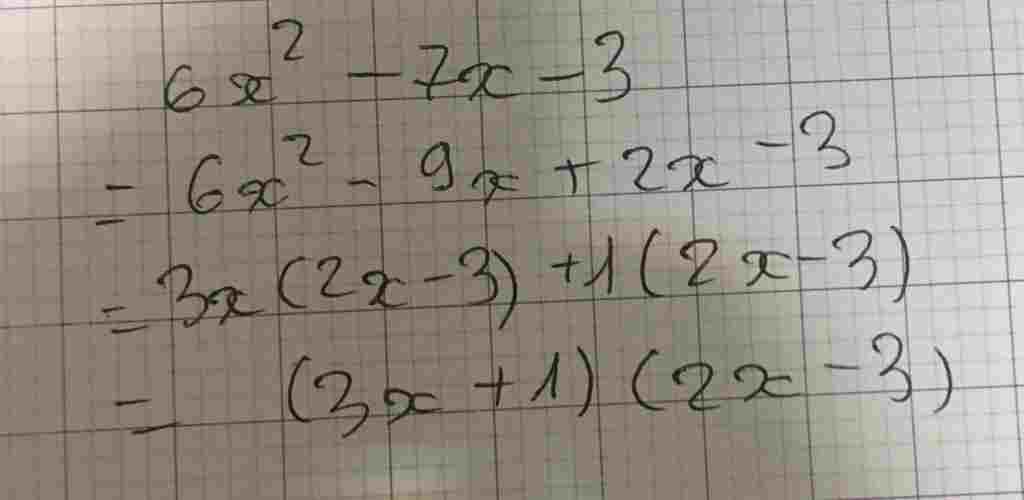 6x² - 7x - 3
= 6x² - 9x + 2x - 3
= 3x(2x - 3) + 1(2x - 3)
= (3x + 1)(2x - 3)